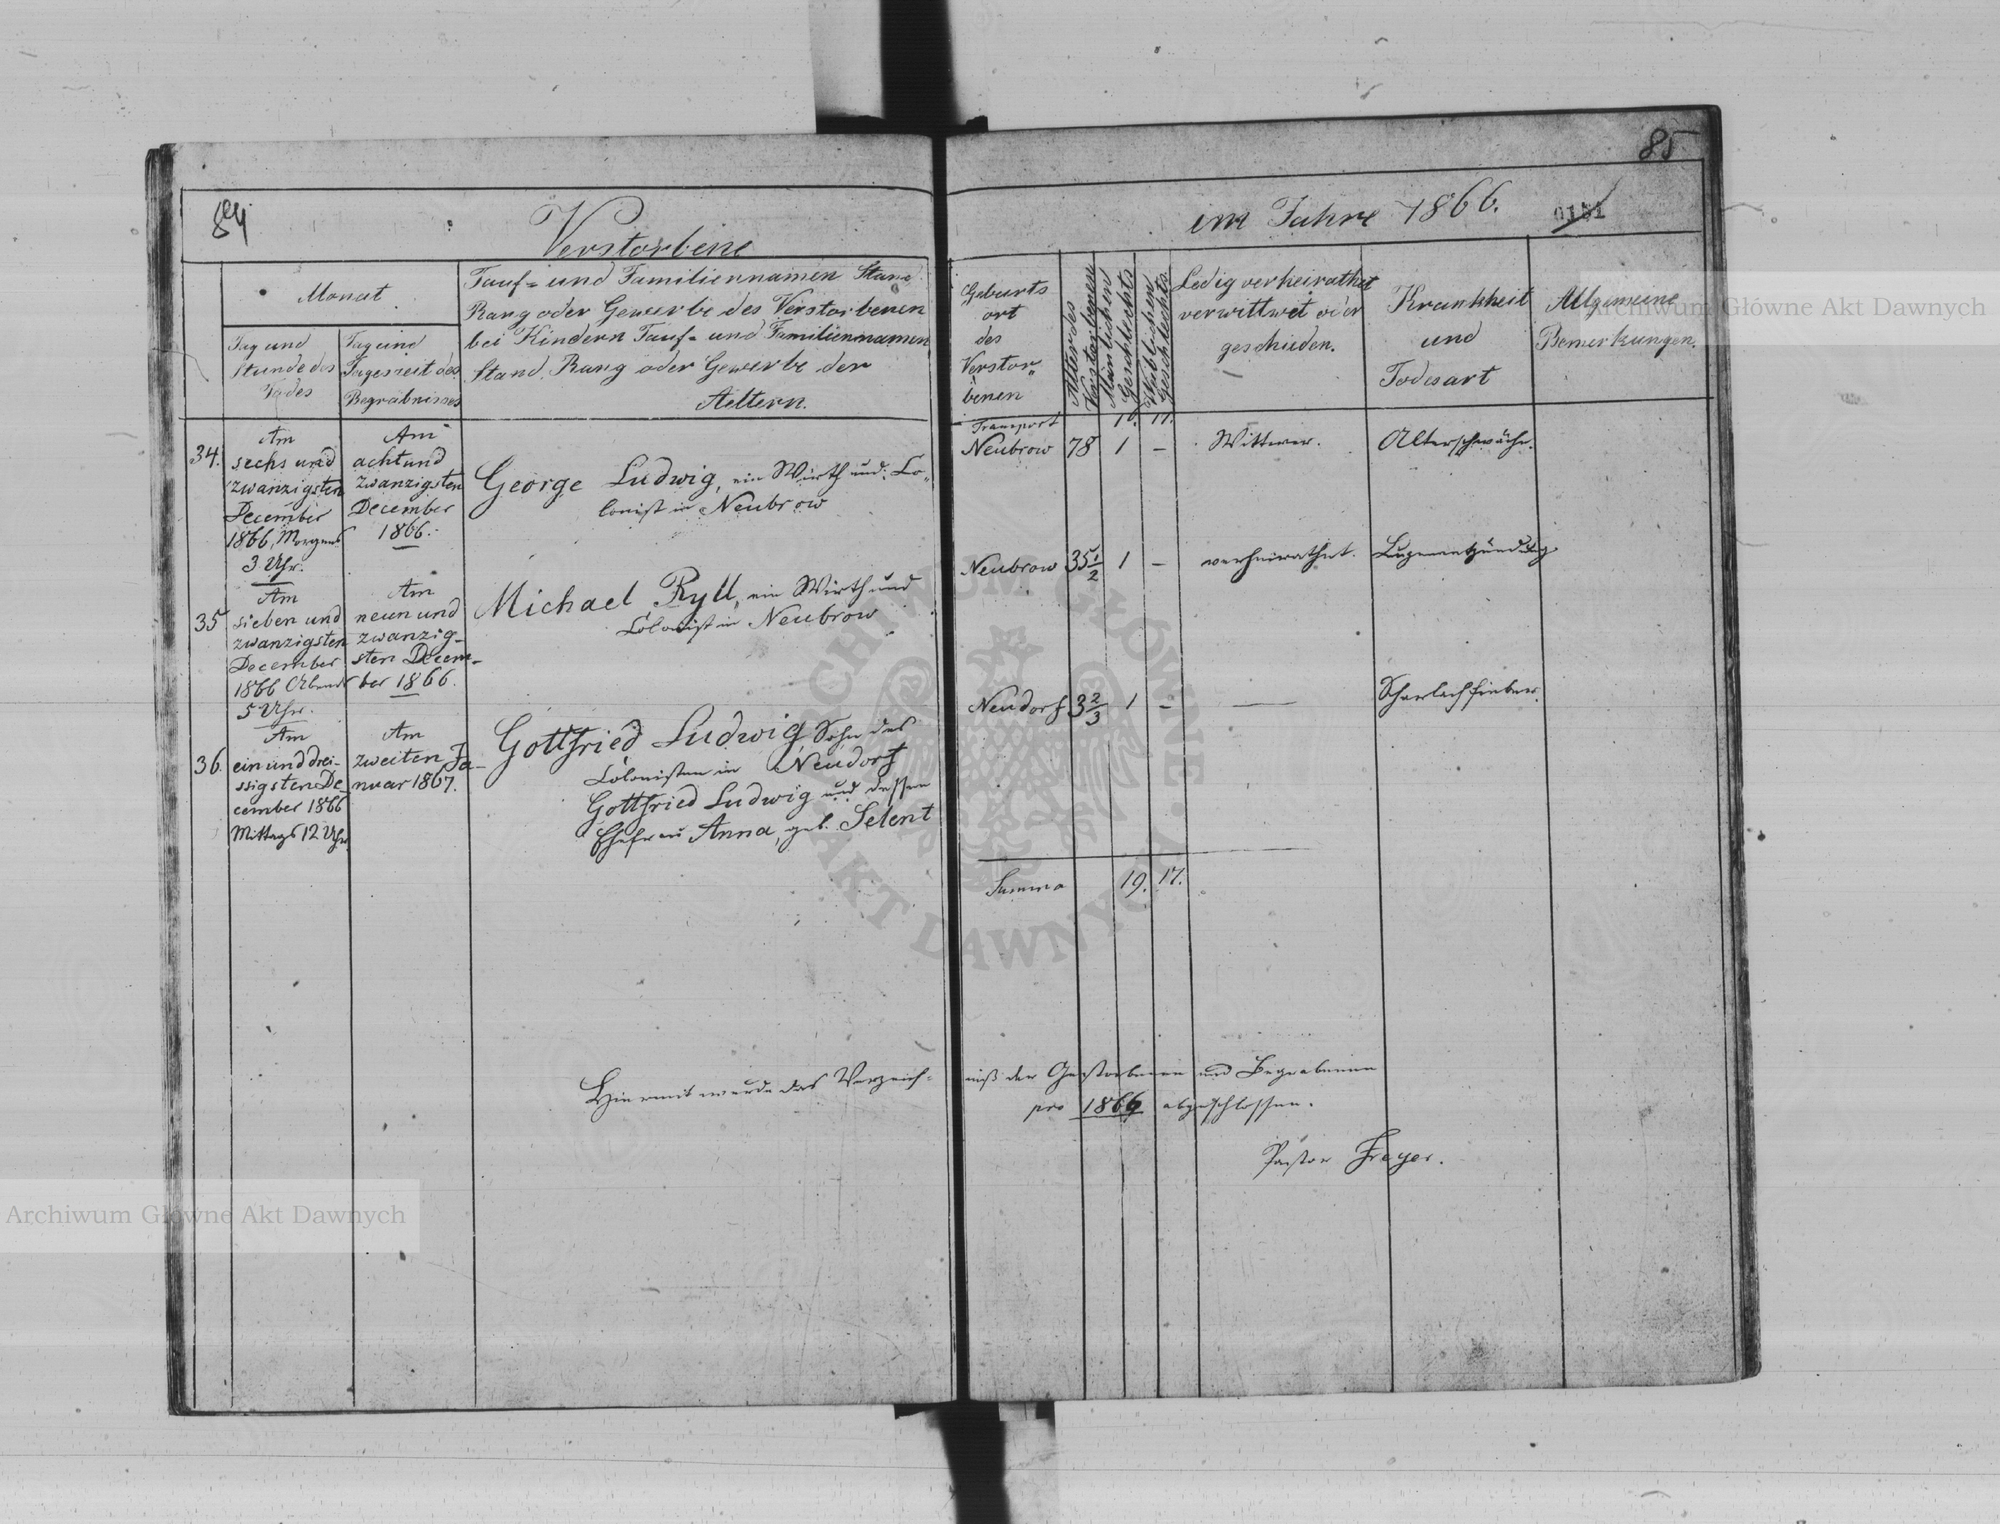 84
Verstorbene
Monat
Tag und
Stunde des
Todes
Tag und
Tageszeit des
Begräbnisses
Tauf- und Familiennamen Stand
Rang oder Gewerbe des Verstorbenen
bei Kindern Tauf- und Familiennamen
Stand, Rang oder Gewerbe der
Aeltern.
34.
Am
sechs und
zwanzigsten
December
1866, Morgens
3 Uhr.
Am
acht und
zwanzigsten
December
1866.
George Ludwig, ein Wirth und Co-
lonist in Neubrow
35
Am
sieben und
zwanzigsten
December
1866 Abends
5 Uhr.
Am
neun und
zwanzig-
sten Decem-
ber 1866.
Michael Ryll, ein Wirth und
Colonist in Neubrow
36.
Am
ein und drei-
ssigsten De
cember 1866
Mittags 12 Uhr.
Am
zweiten Ja-
nuar 1867.
Gottfried Ludwig, Sohn des
Colonisten in Neudorf
Gottfried Ludwig und dessen
Ehefrau Anna, geb. Selent
85
im Jahre 1866.
0151
Geburts
ort
des
Verstor-
benen
Alter des
Verstorbenen
Männlichen
Geschlechts
Weiblichen
Geschlechts
Ledig verheirathet
verwittwet oder
geschieden.
Krankheit
und
Todesart
Allgemeine
Bemerkungen.
Transport
Neubrow 78 1 – Wittwer. Altersschwäche.
Neubrow 35 1/2 1 – verheirathet. Lugenentzündung
Neudorf 3 2/3 1 – — Scharlachfieber.
Summa 19. 17.
Hiermit wurde das Verzeich-
niß der Gestorbenen und Begrabenen
pro 1866 abgeschlossen.
Pastor Freyer.
Archiwum Główne Akt Dawnych
Archiwum Główne Akt Dawnych
ARCHIWUM GŁÓWNE AKT DAWNYCH